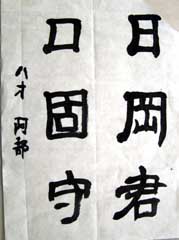 日岡君
口固守
八才 阿部